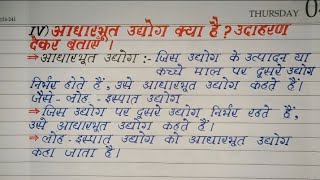 THURSDAY 0
IV) आधारभूत उद्योग क्या है ? उदाहरण
देकर बताएँ ।
⇒ आधारभूत उद्योग :- जिस उद्योग के उत्पादन या
कच्चे माल पर दुसरे उद्योग
निर्भर होते हैं , उसे आधारभूत उद्योग कहते हैं ।
जैसे - लोह - इस्पात उद्योग
⇒ जिस उद्योग पर दुसरे उद्योग निर्भर रहते हैं ,
उसे आधारभूत उद्योग कहते हैं ।
⇒ लोह - इस्पात उद्योग को आधारभूत उद्योग
कहा जाता है ।